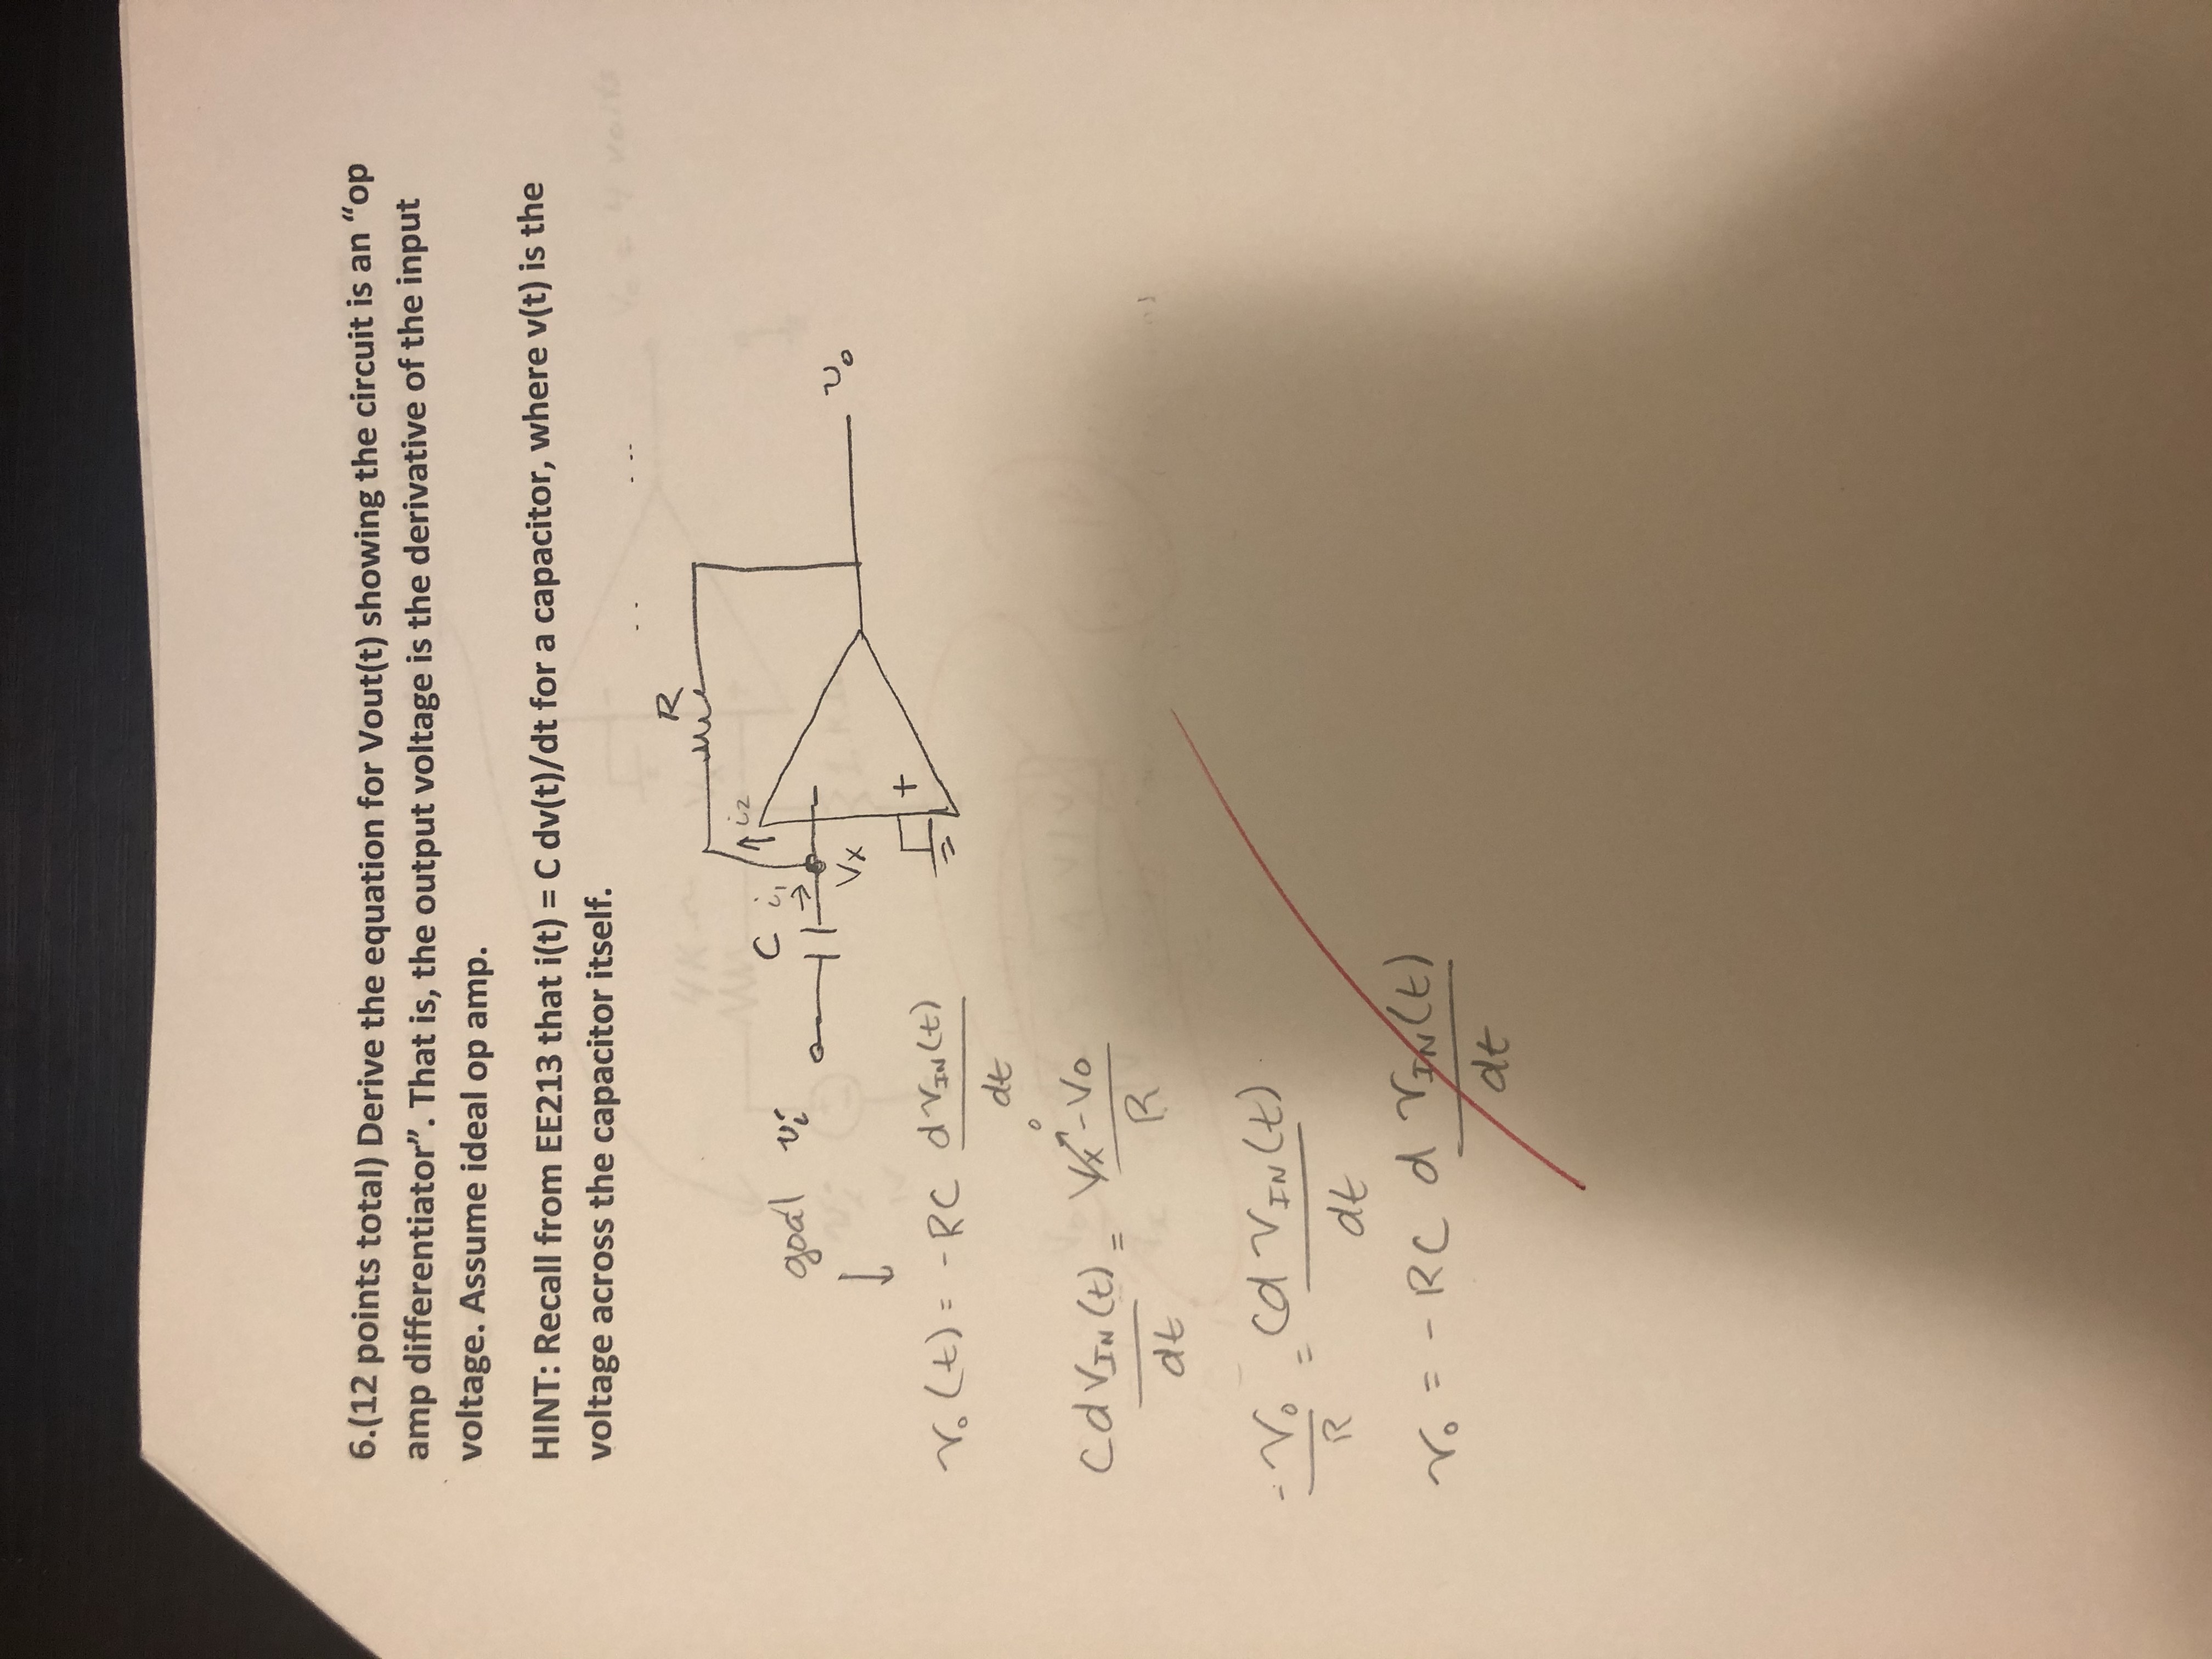 6.(12 points total) Derive the equation for Vout(t) showing the circuit is an “op
amp differentiator”. That is, the output voltage is the derivative of the input
voltage. Assume ideal op amp.
HINT: Recall from EE213 that i(t) = C dv(t)/dt for a capacitor, where v(t) is the
voltage across the capacitor itself.
R
i2
C i1
goal vi
Vx
vo
+
vo(t) = -RC dvIN(t)
dt
0
CdVIN(t) = Vx-Vo
dt R
-vo = Cd vIN(t)
R dt
vo = -RC d vIN(t)
dt
4K
Vo = 4 volts